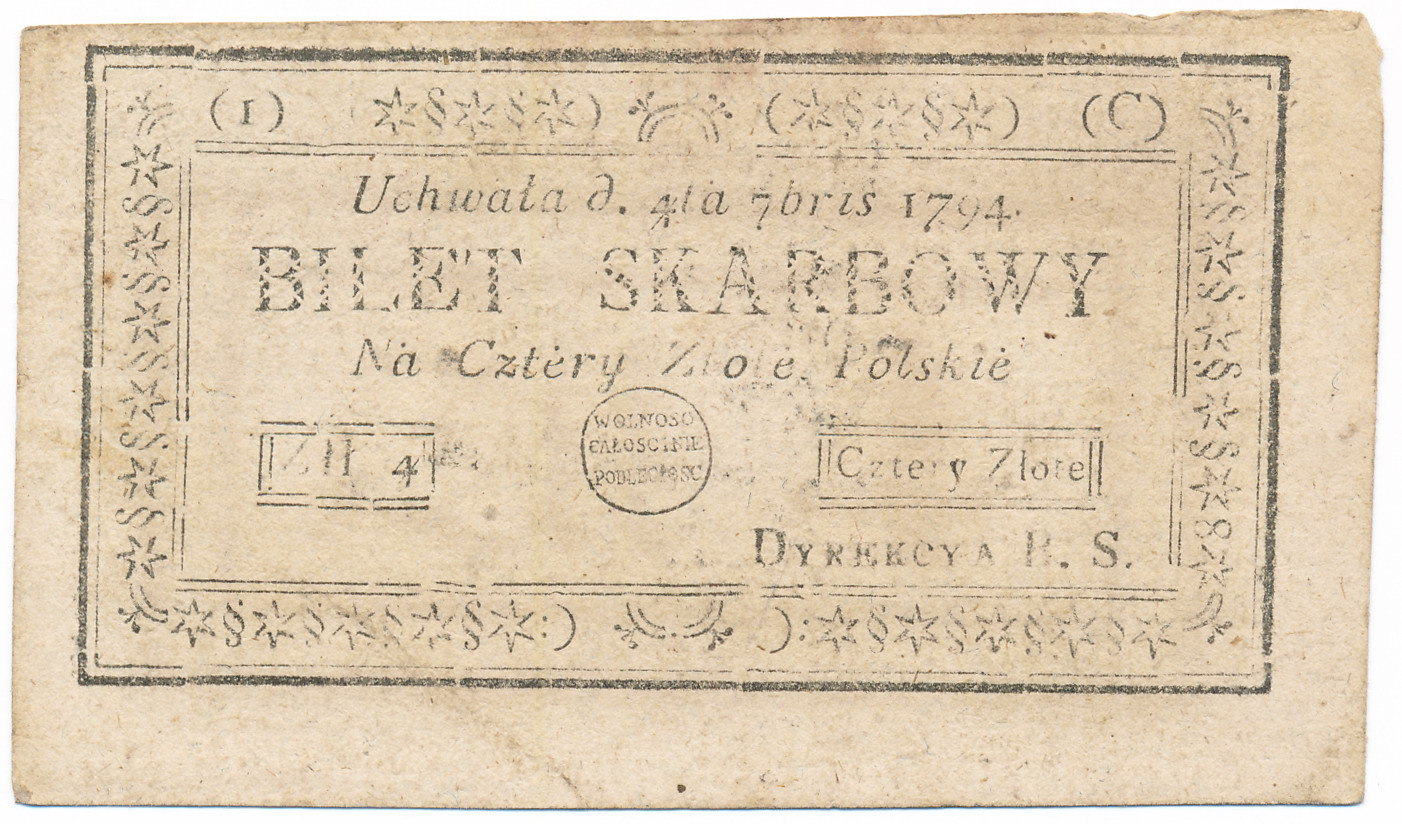 (1) (C)
Uchwała d. 4ta 7bris 1794.
BILET SKARBOWY
Na Cztėry Złote Polskiė
Złł 4
WOLNOSC
CAŁOSCINIE
PODLEGŁOSC
Cztery Złote
DYREKCYA B. S.